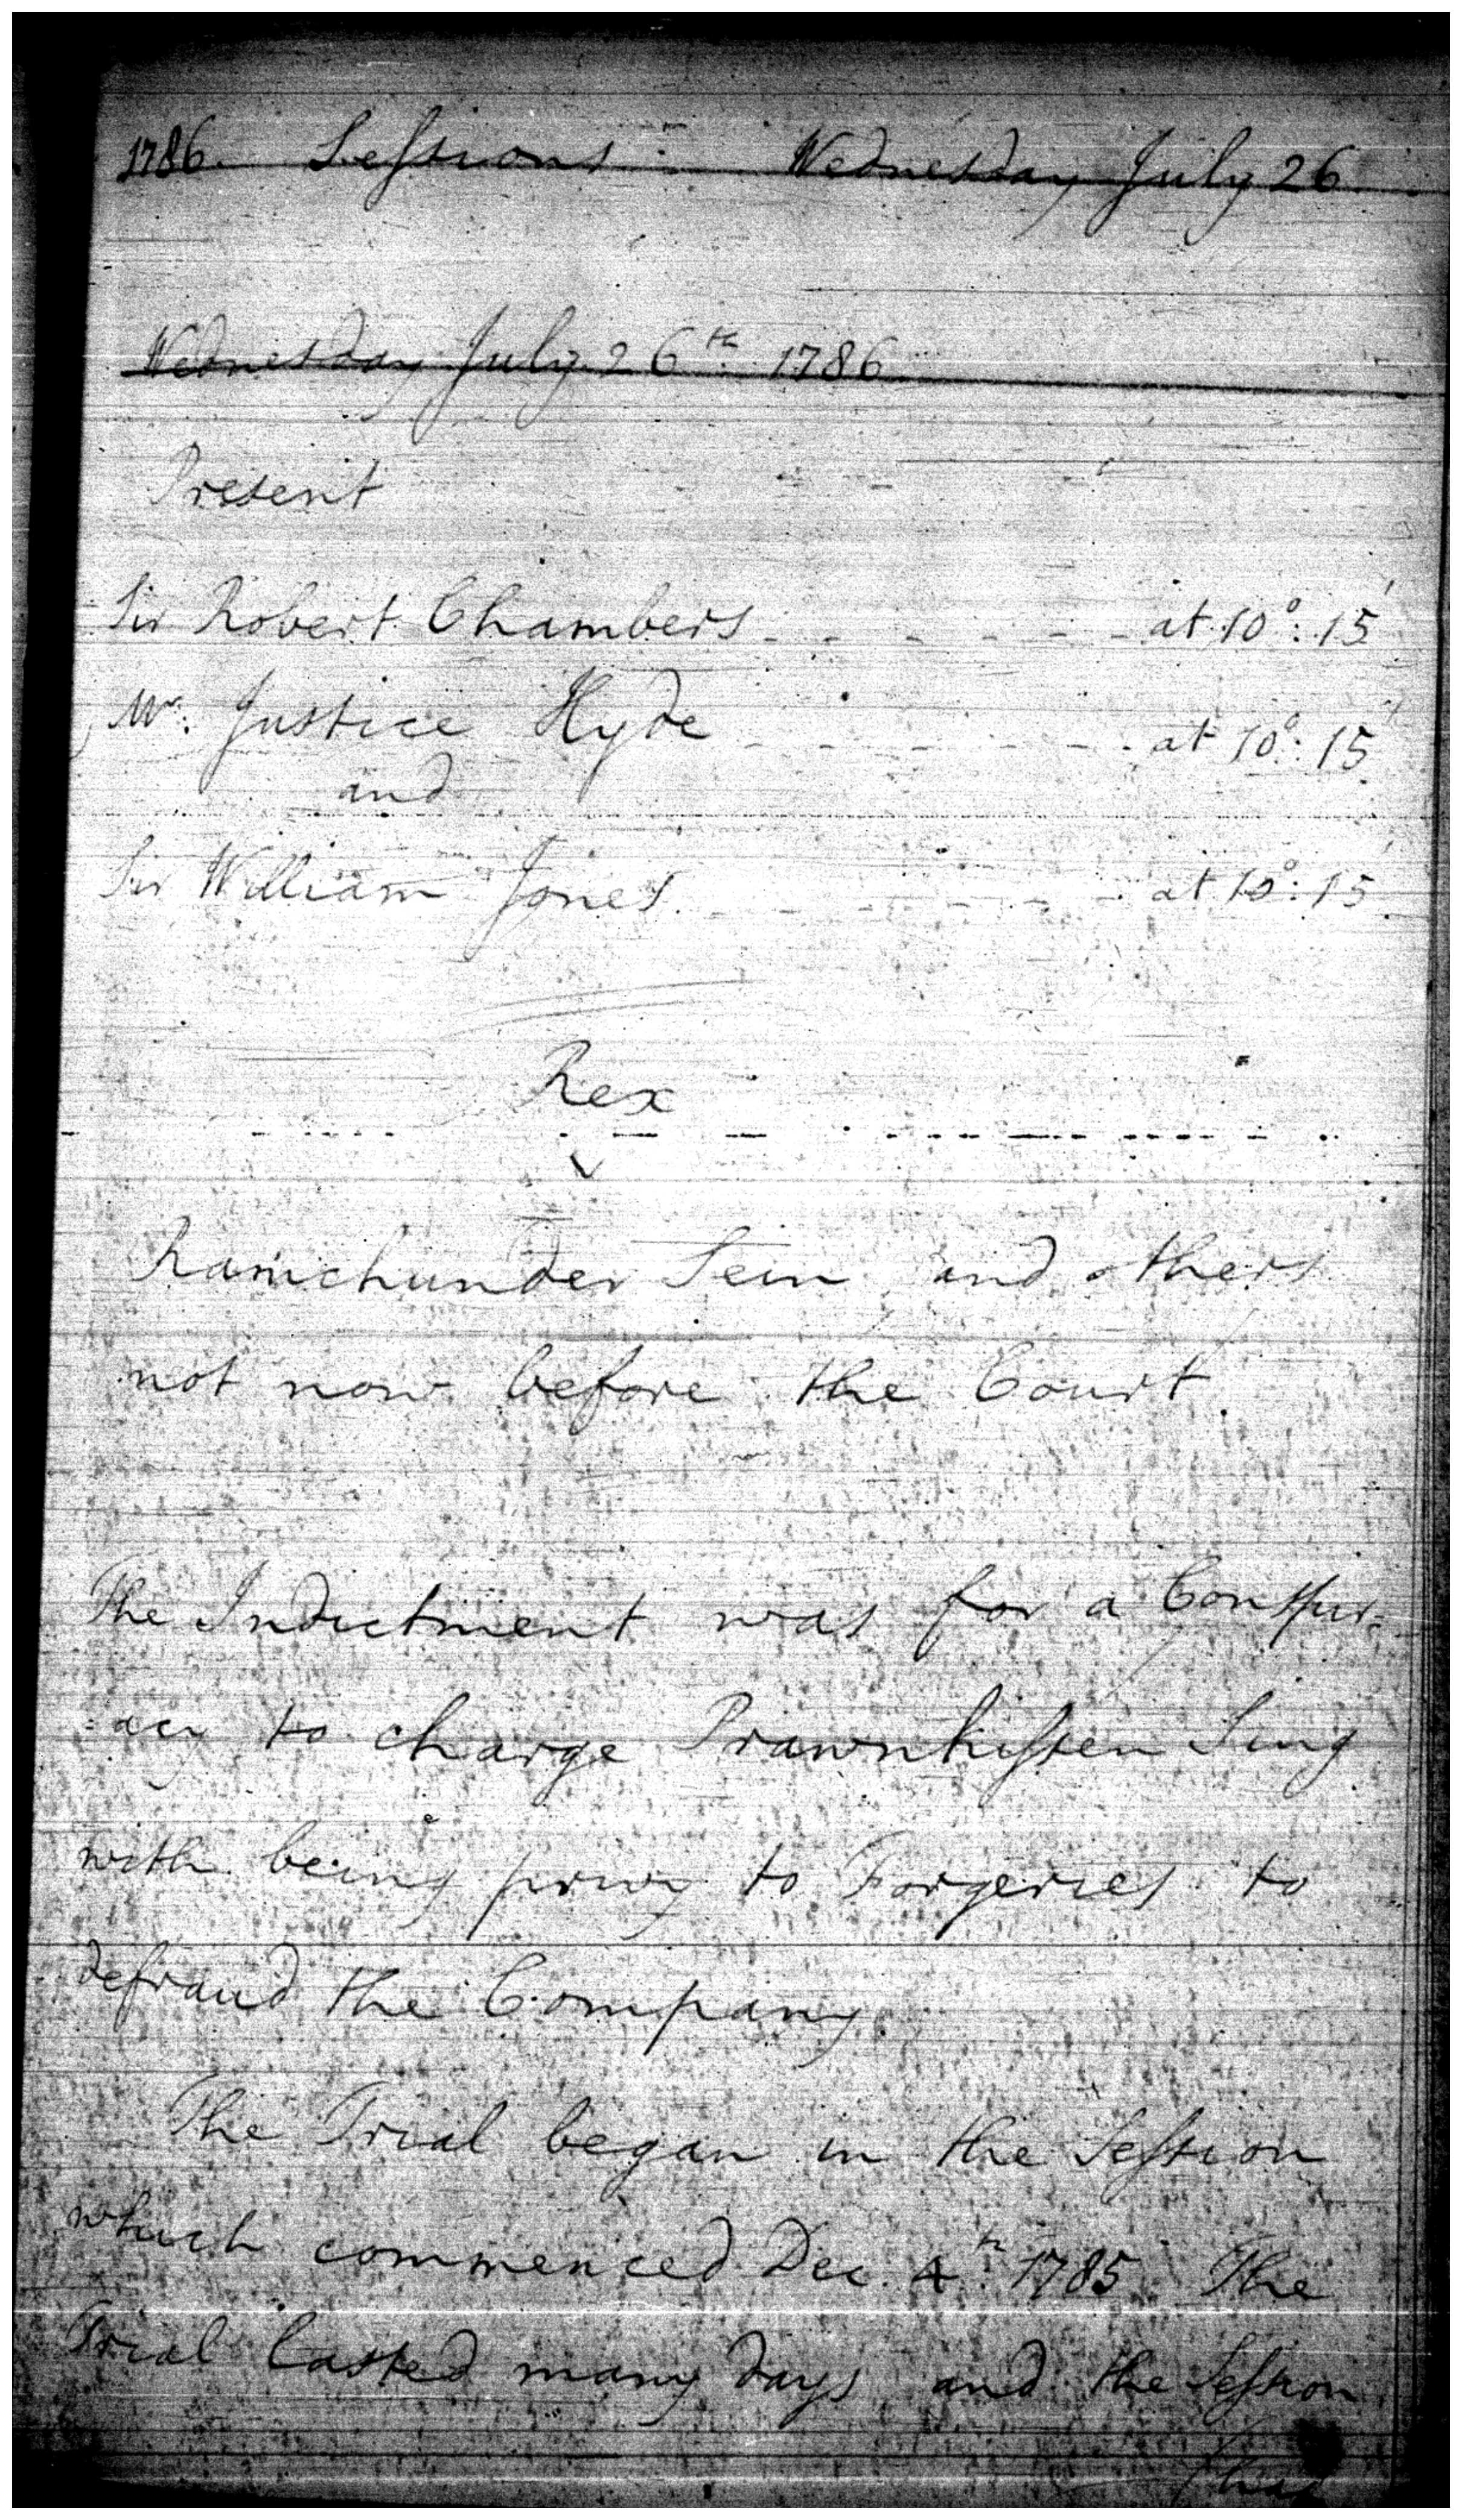 1786. Sessions. Wednesday July 26.
Wednesday July 26th. 1786
Present
Sir Robert Chambers - - - - - - at 10°: 15'
Mr. Justice Hyde - - - - - - at 10°: 15'
and
Sir William Jones - - - - - - at 10°: 15'
Rex
v
Ramchunder Sein and others
not now before the Court.
The Indictment was for a Conspir=
=acy to charge Prawnkissen Sing
with being privy to Forgeries to
defraud the Company.
The Trial began in the Session
which commenced Dec. 4th. 1785. The
Trial lasted many days and the Session